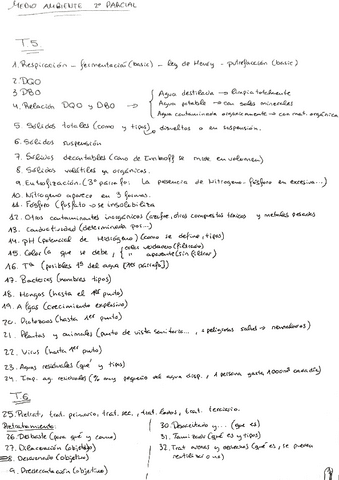 MEDIO AMBIENTE 2º PARCIAL
T.5
1. Respiración - fermentación (basic) - ley de Henry - putrefacción (basic)
2. DQO
3 DBO
4. Relación DQO y DBO
Agua destilada → limpia totalmente
Agua potable → con sales minerales
Agua contaminada orgánicamente → con mat. orgánica
5. Sólidos totales (como y tipos) disueltos o en suspensión.
6. Sólidos suspensión
7. Sólidos decantables (cono de Imhoff se mide en volumen)
8. Sólidos volátiles y orgánicos.
9. Eutrofización. (3º párrafo: La presencia de Nitrógeno - fósforo en exceso...)
10. Nitrógeno aparece en 3 formas.
11. Fósforo (fosfato → se insolubiliza
12. Otros contaminantes inorgánicos (azufre, otros compuestos tóxicos y metales pesados
13. Conductividad (determinada por...)
14. pH (potencial de Hidrógeno) (como se define, tipos)
15. Color (a que se debe, color verdadero (filtrado)
" aparente (sin filtrar)
16. Tª (posibles Tª del agua [1er párrafo])
17. Bacterias (nombres tipos)
18. Hongos (hasta el 1er punto)
19. Algas (crecimiento explosivo)
20. Protozoos (hasta 1er punto)
21. Plantas y animales (punto de vista sanitario..., peligrosas salud →
22. Virus (hasta 1er punto)
23. Aguas residuales (qué y tipos)
24. Imp. ag. residuales (% muy pequeño del agua disp., 1 persona gasta 1000 m³ cada día)
T.6
25. Pretrat, trat. primario, trat. sec., trat. fangos, trat. terciario.
Pretratamiento:
26. Desbaste (para qué y como)
27. Dilaceración (objetivo)
28. Desarenado (objetivo)
9. Predecantación (objetivo)
30. Desaceitado y... (que es)
31. Tamizado (qué es y tipos)
32. Trat. arenas y grasas (qué es, se pueden reutilizar o no